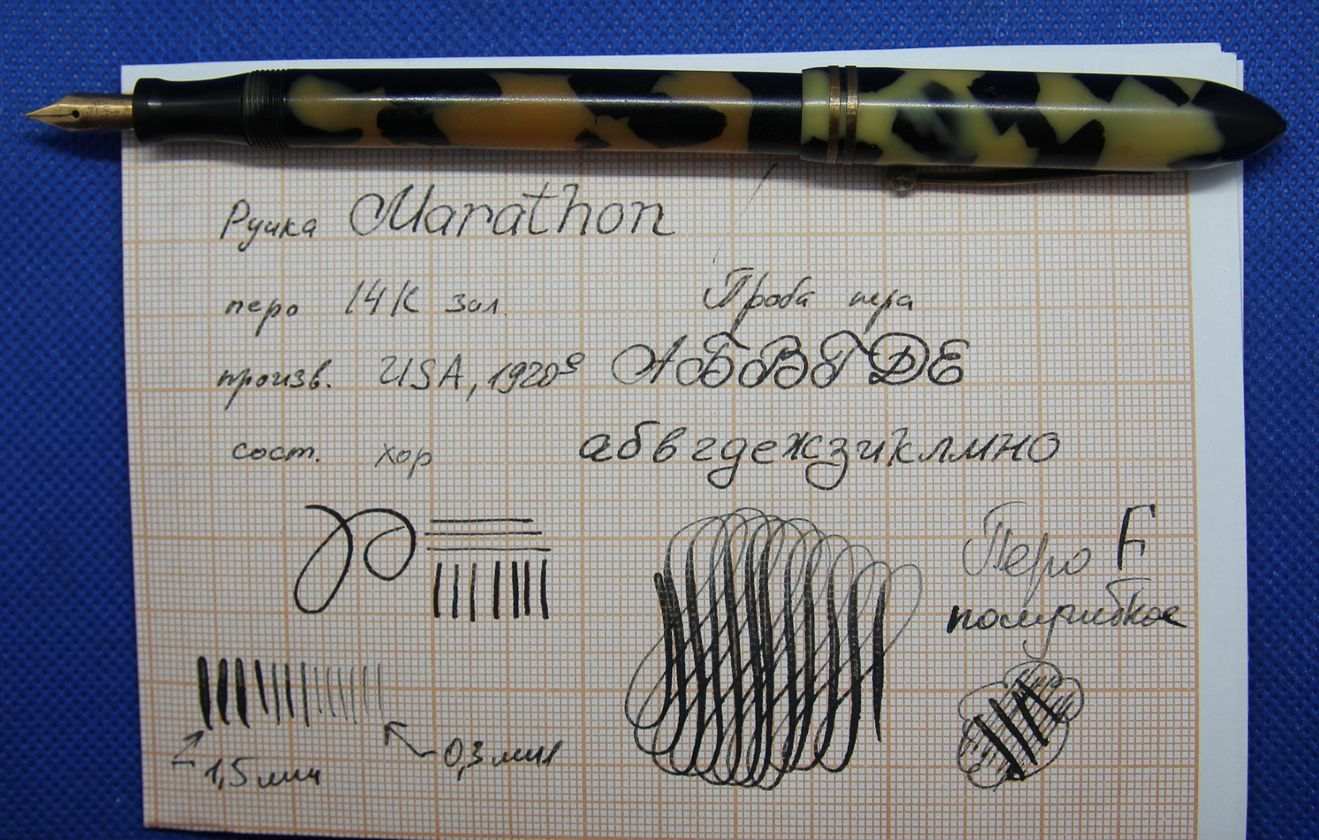 Ручка Marathon
перо 14К зол.
произв. USA, 1920е
сост. хор
Проба пера
АБВГДЕ
абвгдежзиклмно
Перо F
полугибкое
1,5 мм
0,3 мм